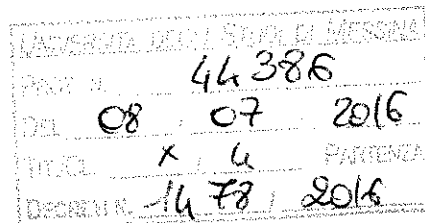 UNIVERSITÀ DEGLI STUDI DI MESSINA
PROT. N. 44386
DEL 08 / 07 / 2016
TIT./CL. X / 4 PARTENZA
DECRETO N. 1478 / 2016